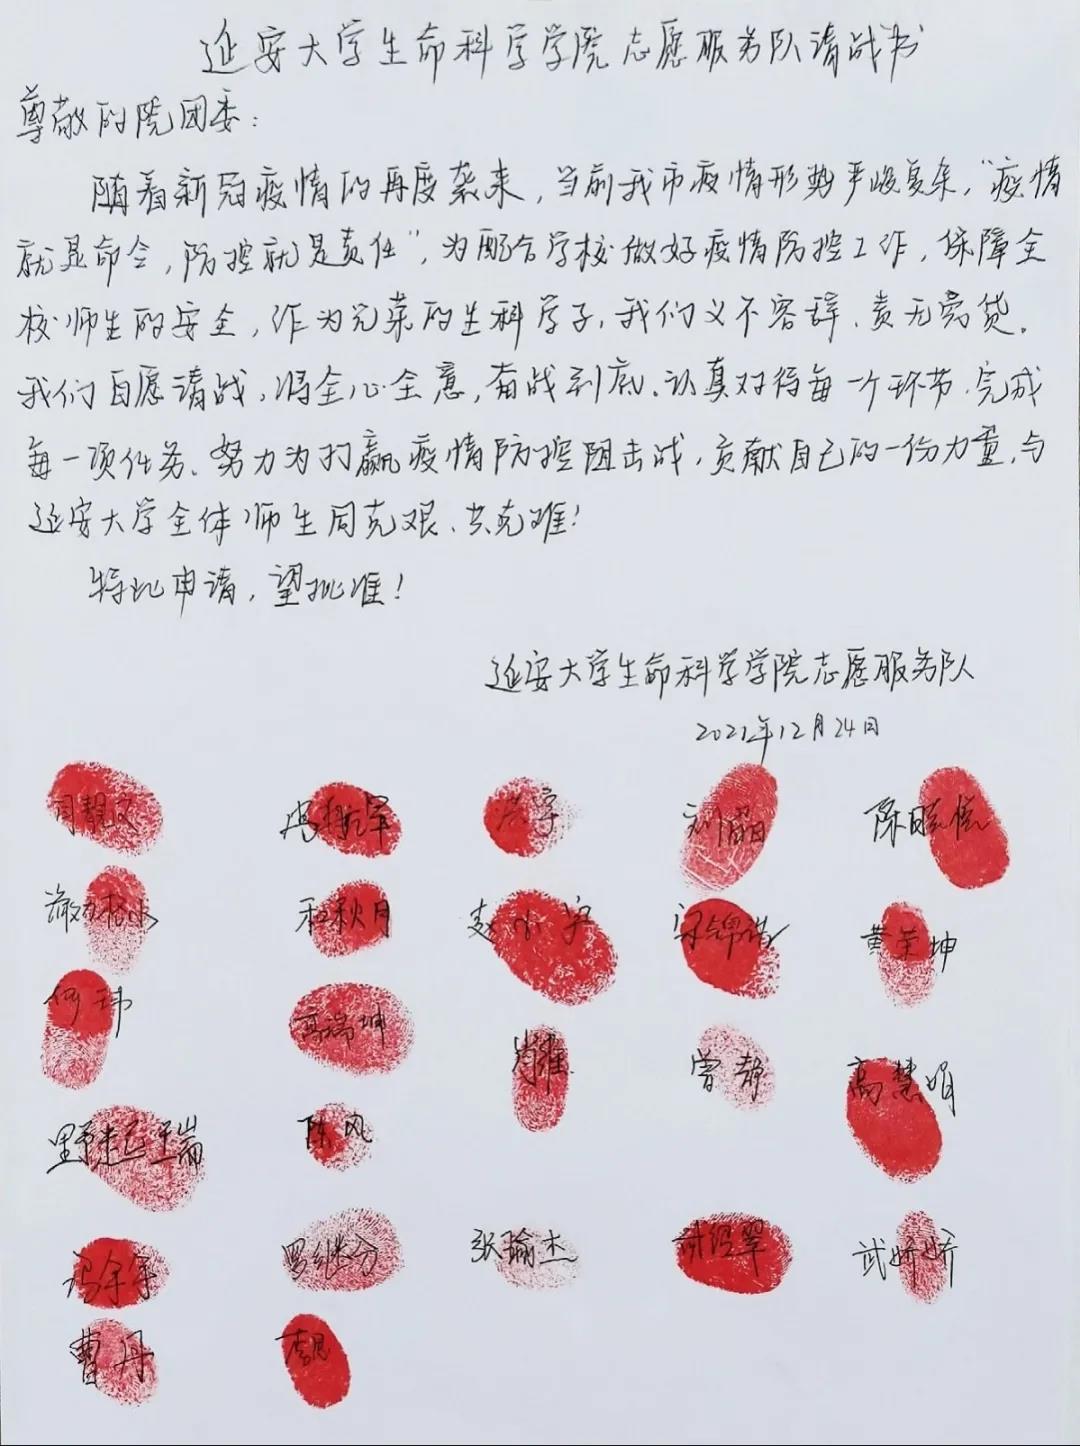 延安大学生命科学学院志愿服务队请战书
尊敬的院团委：
随着新冠疫情的再度袭来，当前我市疫情形势严峻复杂，“疫情
就是命令，防控就是责任”，为配合学校做好疫情防控工作，保障全
校师生的安全，作为光荣的生科学子，我们义不容辞、责无旁贷。
我们自愿请战，将全心全意，奋战到底、认真对待每一个环节、完成
每一项任务、努力为打赢疫情防控阻击战，贡献自己的一份力量，与
延安大学全体师生同克艰、共克难！
特此申请，望批准！
延安大学生命科学学院志愿服务队
2021年12月24日
周靓文 洪宇 刘晶 陈晓悦
和秋月 赵小宇 梁锦浩 黄荣坤
何玮 高瑞坤 肖雅 曾静 高慧娟
陈风
冯宇宇 罗继芬 张瑜杰 武娇娇
曹丹 李思